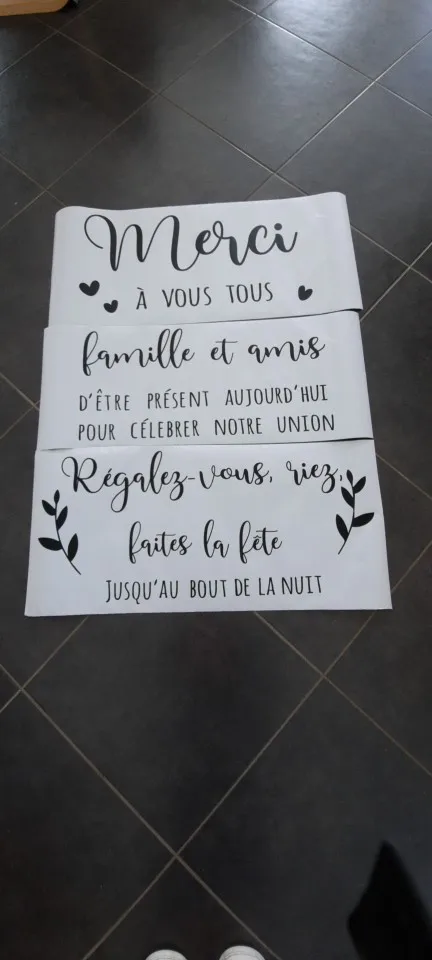 Merci
À VOUS TOUS
famille et amis
D'ÊTRE PRÉSENT AUJOURD'HUI
POUR CÉLEBRER NOTRE UNION
Régalez-vous, riez,
faites la fête
JUSQU'AU BOUT DE LA NUIT